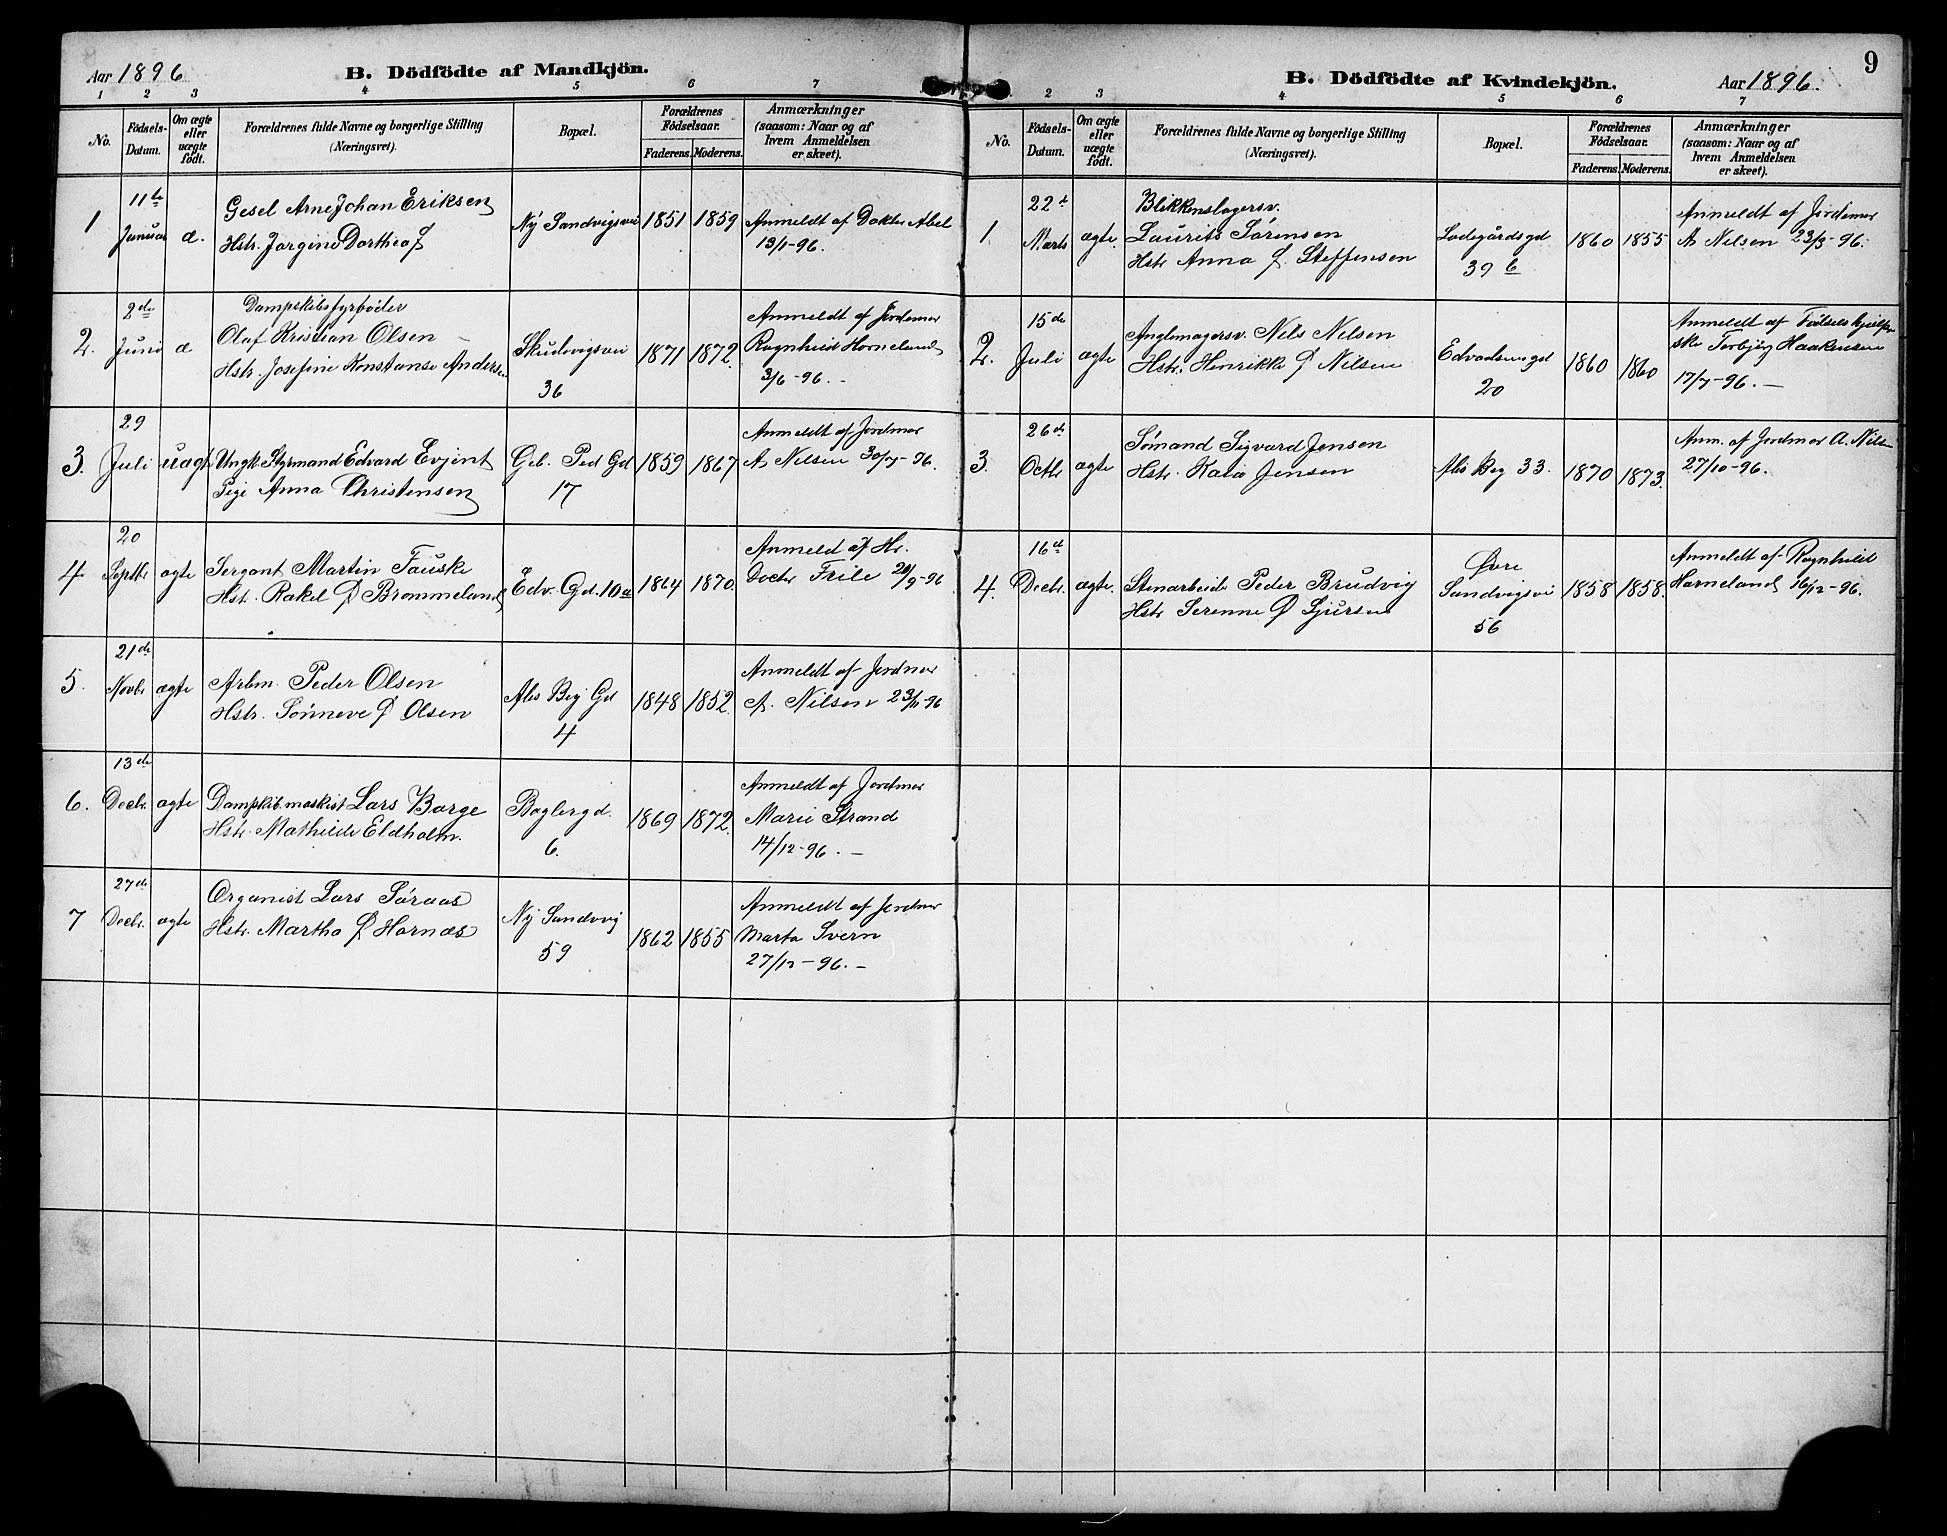 Aar 1896
B. Dödfödte af Mandkjön.
1 2 3 4 5 6 7
No. Födsels-Datum. Om ægte eller uægte födt. Forældrenes fulde Navne og borgerlige Stilling (Næringsvei). Bopæl. Forældrenes Födselsaar. Faderens. Moderens. Anmærkninger (saasom: Naar og af hvem Anmeldelsen er skeet).
1 11te Januar æ. Gesel Arne Johan Eriksen
Hstr. Jorgine Dorthea f Ny Sandvigsvei 1851 1859 Anmeldt af Dokter Abel
13/1-96.
2. 2de Juni æ Dampskibsfyrbøder
Olaf Kristian Olsen –
Hstr. Josefine Konstanse Andersen Skudevigsvei
36 1871 1872. Anmeldt af Jordemor
Ragnhild Horneland
3/6-96. –
3. 29 Juli uægt Ungk. Styrmand Edvard Evjent
Pige Anna Christensen Geb. Ped Gd
17 1859 1867 Anmeldt af Jordmor
A. Nilsen 30/7-96.
4. 20 Septbr ægte Sergant Martin Fauske
Hst. Rakel f Brommeland Edv. Gd. 10a 1864 1870. Anmeld af Hr.
Docter Friele 20/9-96
5. 21de Novbr ægte Arbm. Peder Olsen
Hstr. Sønneve f Olsen Als Big Gd
4 1848 1852. Anmeldt af Jordmor
A. Nilsen 23/11-96
6. 13de Decbr. ægte Dampskib. maskist Lars Borge
Hstr. Mathilde Eldholm. Baglergd.
6. 1869 1872. Anmeldt af Jordmor
Marie Strand
14/12-96. –
7 27de Decbr. ægte Organist Lars Søraas
Hstr. Martha f Hornæs Ny Sandvig
59 1862 1855 Anmeldt af Jordmor
Marta Svern
27/12-96. –
9
B. Dödfödte af Kvindekjön.
Aar 1896.
2 3 4 5 6 7
No. Födsels-Datum. Om ægte eller uægte födt. Forældrenes fulde Navne og borgerlige Stilling (Næringsvei). Bopæl. Forældrenes Födselsaar. Faderens. Moderens. Anmærkninger (saasom: Naar og af hvem Anmeldelsen er skeet).
1. 22d Marts ægte. Blikkenslagersv.
Laurits Sørensen
Hstr Anna f. Steffensen Ladegårdsgd
39 b 1860 1855 Anmeldt af Jordemor
A Nilsen 23/3-96.
2. 15de Juli ægte Anglemagersv. Nils Nilsen
Hstr. Henrikke f Nilsen Edvadsensgd
20 1860 1860 Anmeldt af Fødselshjælper
ske Torbjørg Haakensen
17/7-96. –
3. 26de Octbr ægte Sømand Sigvard Jensen
Hstr. Kaia Jensen Als Beg 33. 1870 1873. Anm. af Jordmor A. Nilsen
27/10-96.
4. 16d Decbr. ægte. Stenarbeide Peder Brudvig
Hstr Serenne f Sjursen Øvre
Sandvigsvei
56 1858 1858. Anmeldt af Ragnhild
Harneland 16/12-96.